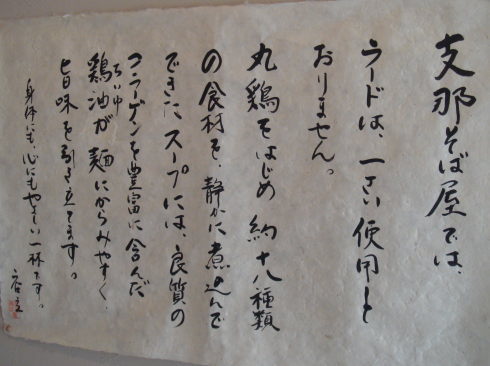 支那そば屋では、
ラードは、一さい使用して
おりません。
丸鶏をはじめ約十八種類
の食材を、静かに煮込んで
できたスープには、良質の
コラーゲンを豊富に含んだ
鶏油がちいゆ麺にからみやすく、
旨味を引き立てます。
身体にも、心にもやさしい一杯です。